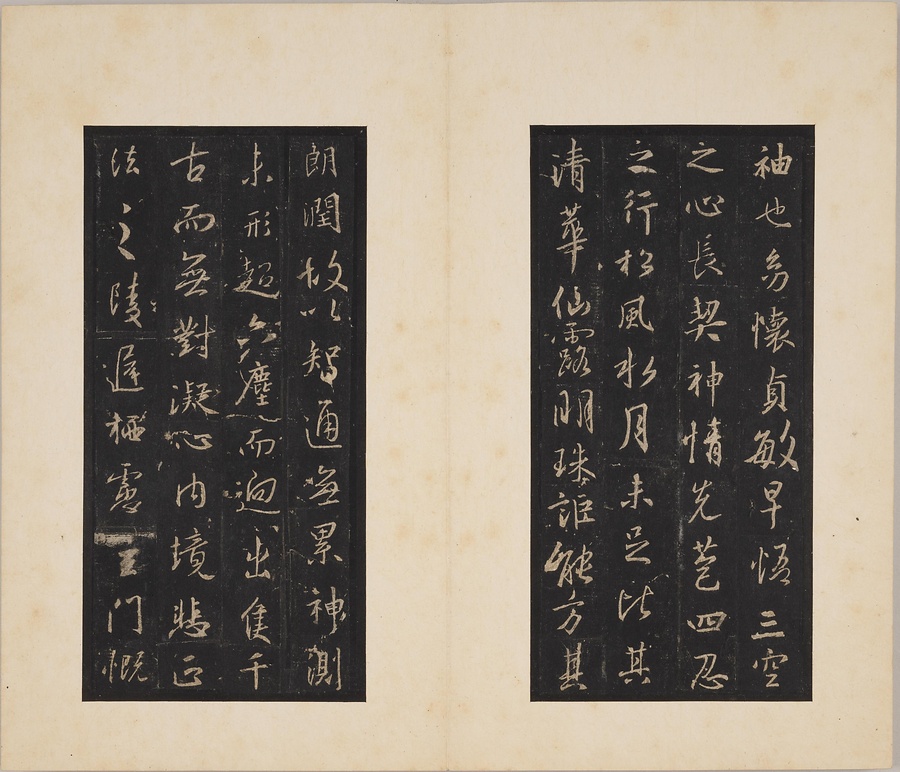 袖也幼懷貞敏早悟三空
之心長契神情先苞四忍
之行松風水月未足比其
清華仙露明珠詎能方其
朗潤故以智通無累神測
未形超六塵而迥出隻千
古而無對凝心內境悲正
法之陵遲栖慮玄門慨